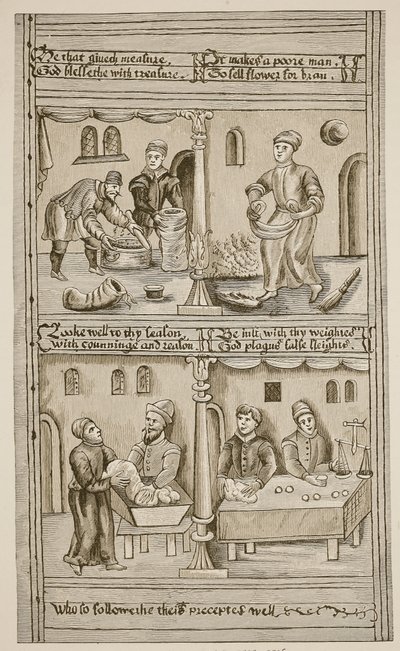 He that giueth measure,
God blessethe with treasure.
It makes a poore man.
To sell flower for bran.
Looke well to thy season,
With counninge and reason.
Be iust with thy weightes
God plagus false sleights.
Who so followethe theis preceptes well